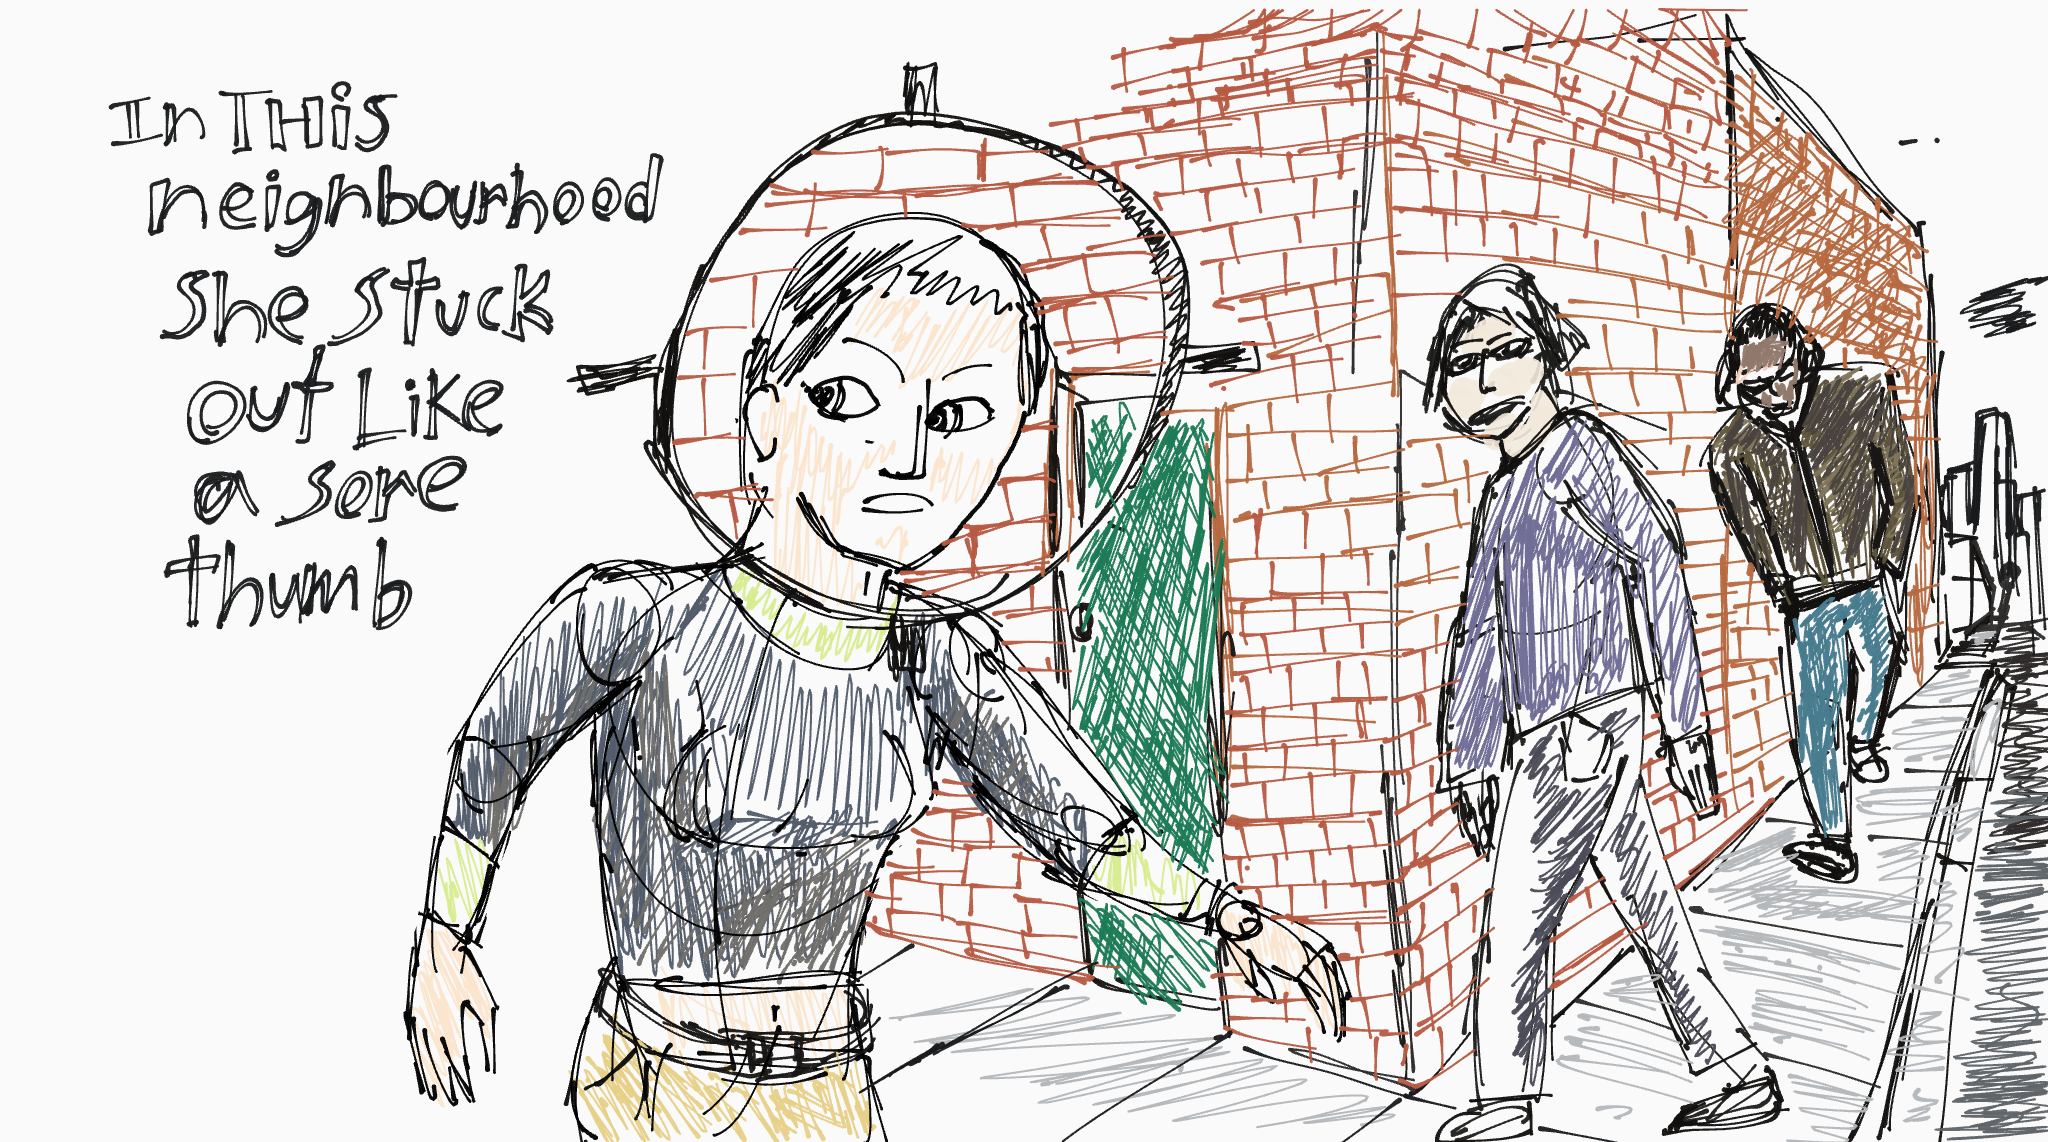 In THis
neighbourhood
She stuck
out Like
a sore
thumb